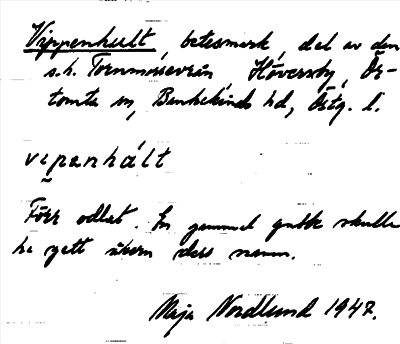 Vippenhult, betesmark, del av den
s.k. Tornmossevren, Höversby, Ör-
tomta sn, Bankekinds hd, Östg. l.
vipanhált
Förr odlat. En gammal gubbe skulle
ha gett åkern dess namn.
Maja Nordlund 1947.